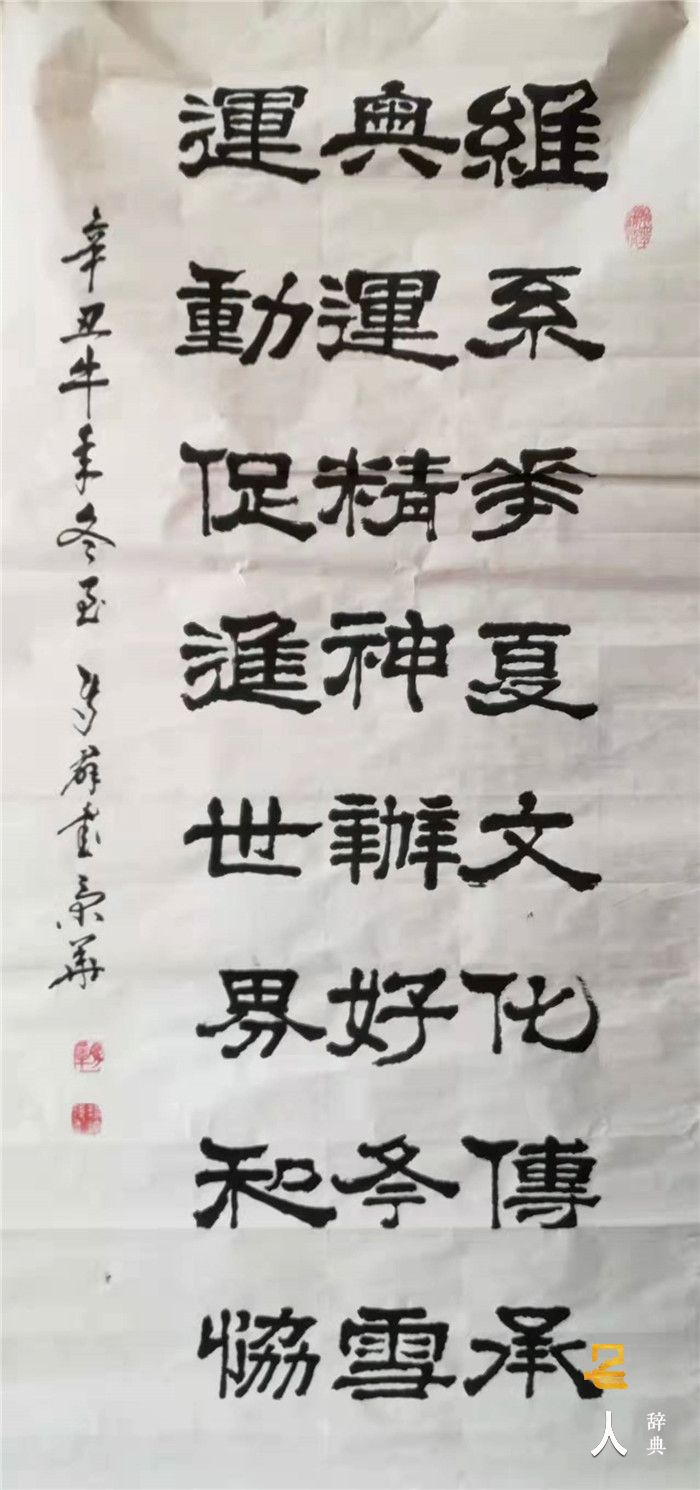 維系華夏文化傳承
奥運精神辦好冬雪
運動促進世界和恊
辛丑牛年冬至 群書京華
人
辞典